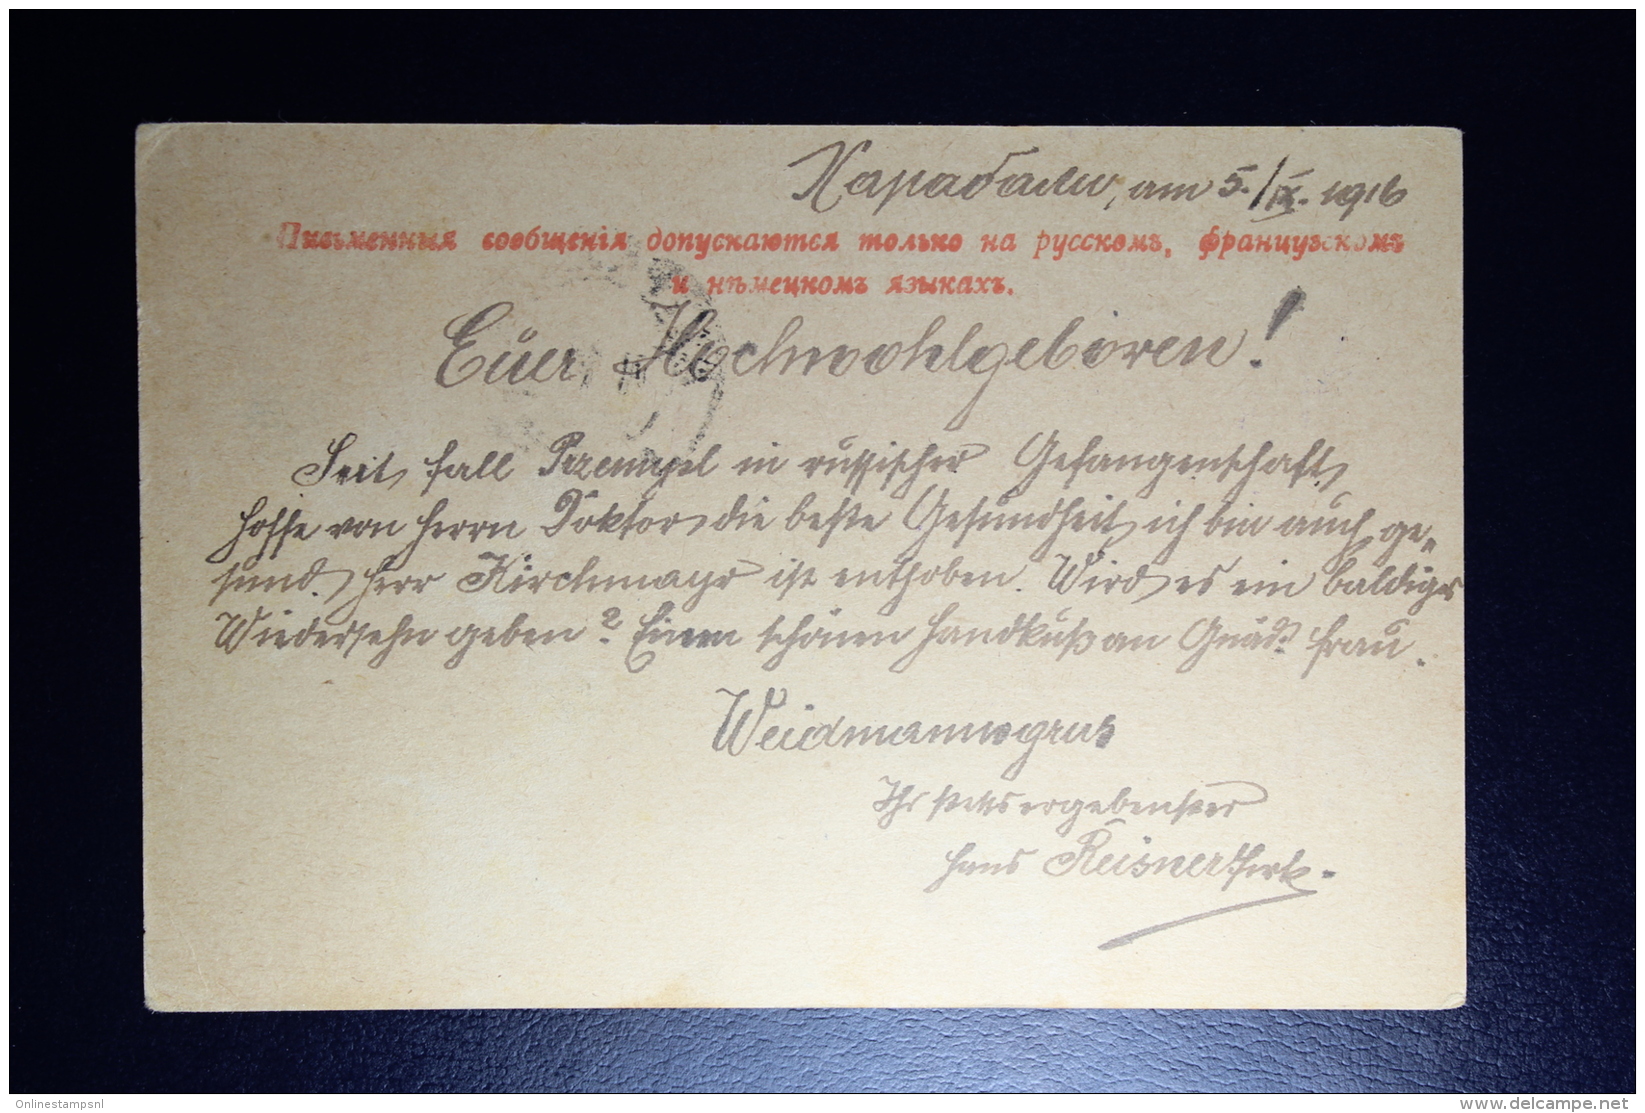 Карабали, am 5./IX. 1916
Письменныя сообщенія допускаются только на русскомъ, французскомъ
и нѣмецкомъ языкахъ.
Euer Hochwohlgeboren!
Seit Fall Przemysl in russischer Gefangenschaft,
hoffe von Herrn Doktor die beste Gesundheit, ich bin auch ge-
sund. Herr Kirchmayr ist enthoben. Wird es ein baldiges
Wiedersehn geben? Einen schönen Handkuß an Gnäd. Frau.
Weidmannsgruß
Ihr stets ergebenster
Hans
Onlinestampsnl
http://www.delcampe.net